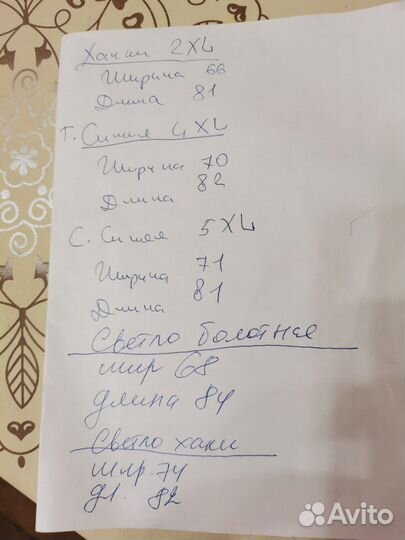 Хакки 2XL
Ширина 66
Длина 81
Т. Синие 4XL
Ширина 70
Длина 82
С. Синяя 5XL
Ширина 71
Длина 81
Светло болотная
шир 68
длина 84
Светло хаки
шир. 74
дл. 82
Avito